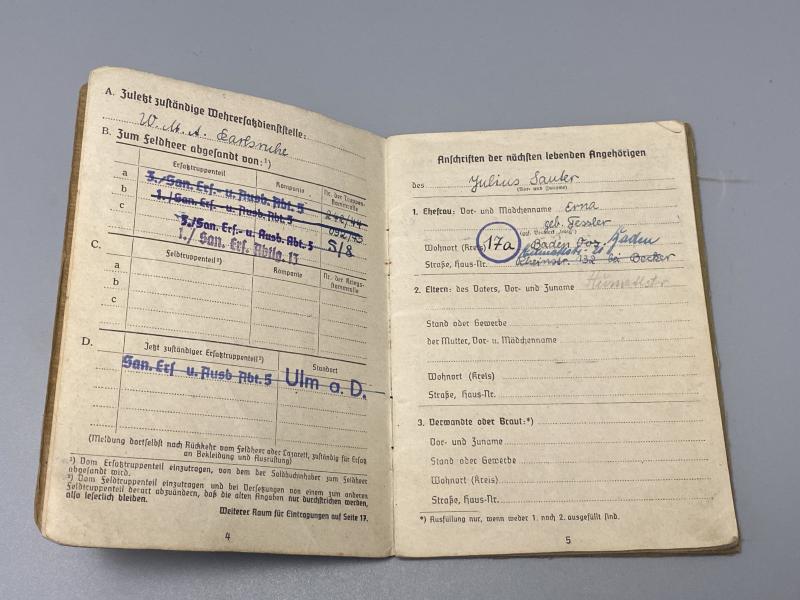 A. Zuletzt zuständige Wehrersatzdienststelle:
W. M. A. Karlsruhe
B. Zum Feldheer abgesandt von:¹)
Ersatztruppenteil Kompanie Nr. der Truppenstammrolle
a 3./San. Ers.- u. Ausb. Abt. 5 248/44
b 1./San. Ers.- u. Ausb. Abt. 5
c 3./San. Ers.- u. Ausb. Abt. 5 S/8
1./ San. Ers. Abtlg. 13
C. Feldtruppenteil²) Kompanie Nr. der Kriegsstammrolle
a
b
c
D. Jetzt zuständiger Ersatztruppenteil²) Standort
San. Ers u. Ausb Abt. 5 Ulm a. D.
(Meldung dortselbst nach Rückkehr vom Feldheer oder Lazarett, zuständig für Ersatz
an Bekleidung und Ausrüstung)
¹) Vom Ersatztruppenteil einzutragen, von dem der Soldbuchinhaber zum Feldheer
abgesandt wird.
²) Vom Feldtruppenteil einzutragen und bei Versetzungen von einem zum anderen
Feldtruppenteil derart abzuändern, daß die alten Angaben nur durchstrichen werden,
also leserlich bleiben.
Weiterer Raum für Eintragungen auf Seite 17.
4
Anschriften der nächsten lebenden Angehörigen
des Julius Sauter
(Vor- und Zuname)
1. Ehefrau: Vor- und Mädchenname Erna
geb. Fessler
Wohnort (Kreis) 17a Baden Baden
Straße, Haus-Nr. Rheinstr. 132 bei Becker
2. Eltern: des Vaters, Vor- und Zuname
Stand oder Gewerbe
der Mutter, Vor- u. Mädchenname
Wohnort (Kreis)
Straße, Haus-Nr.
3. Verwandte oder Braut:*)
Vor- und Zuname
Stand oder Gewerbe
Wohnort (Kreis)
Straße, Haus-Nr.
*) Ausfüllung nur, wenn weder 1. noch 2. ausgefüllt sind.
5